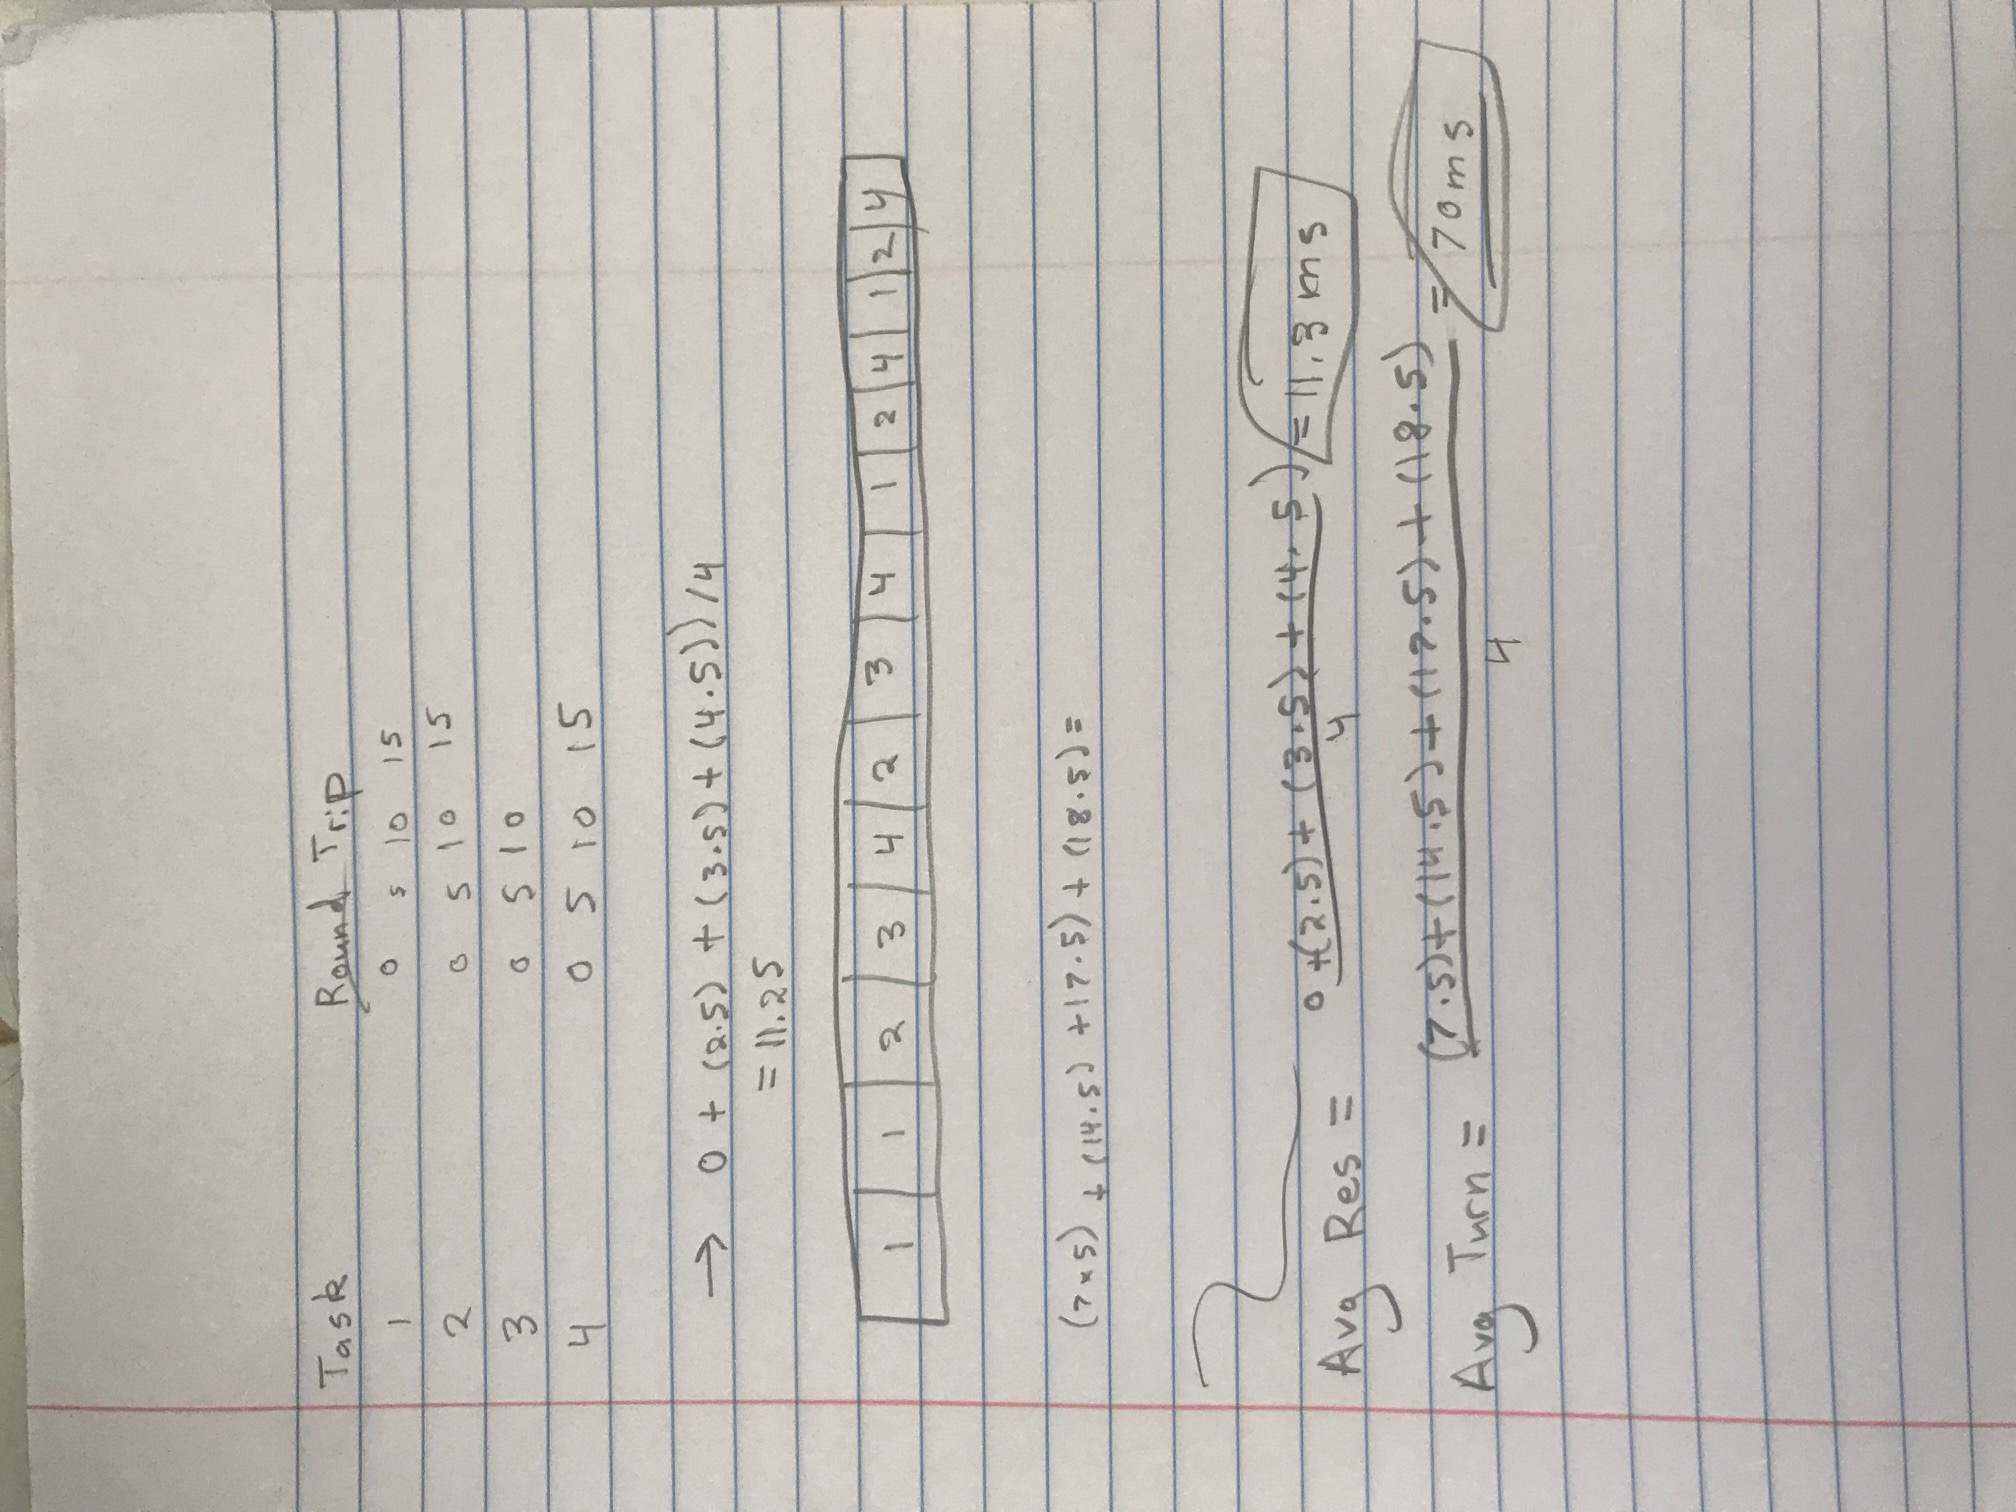 Task Round Trip
1 0 5 10 15
2 0 5 10 15
3 0 5 10
4 0 5 10 15
→ 0 + (2.5) + (3.5) + (4.5)) / 4
= 11.25
1 1 2 3 4 2 3 4 1 2 4 1 2 4
(7x5) + (14.5) + 17.5) + (18.5) =
Avg Res = 0 + (2.5) + (3.5) + (4.5) / 4 = 11.3 ms
Avg Turn = (7.5) + (14.5) + (17.5) + (18.5) / 4 = 70ms